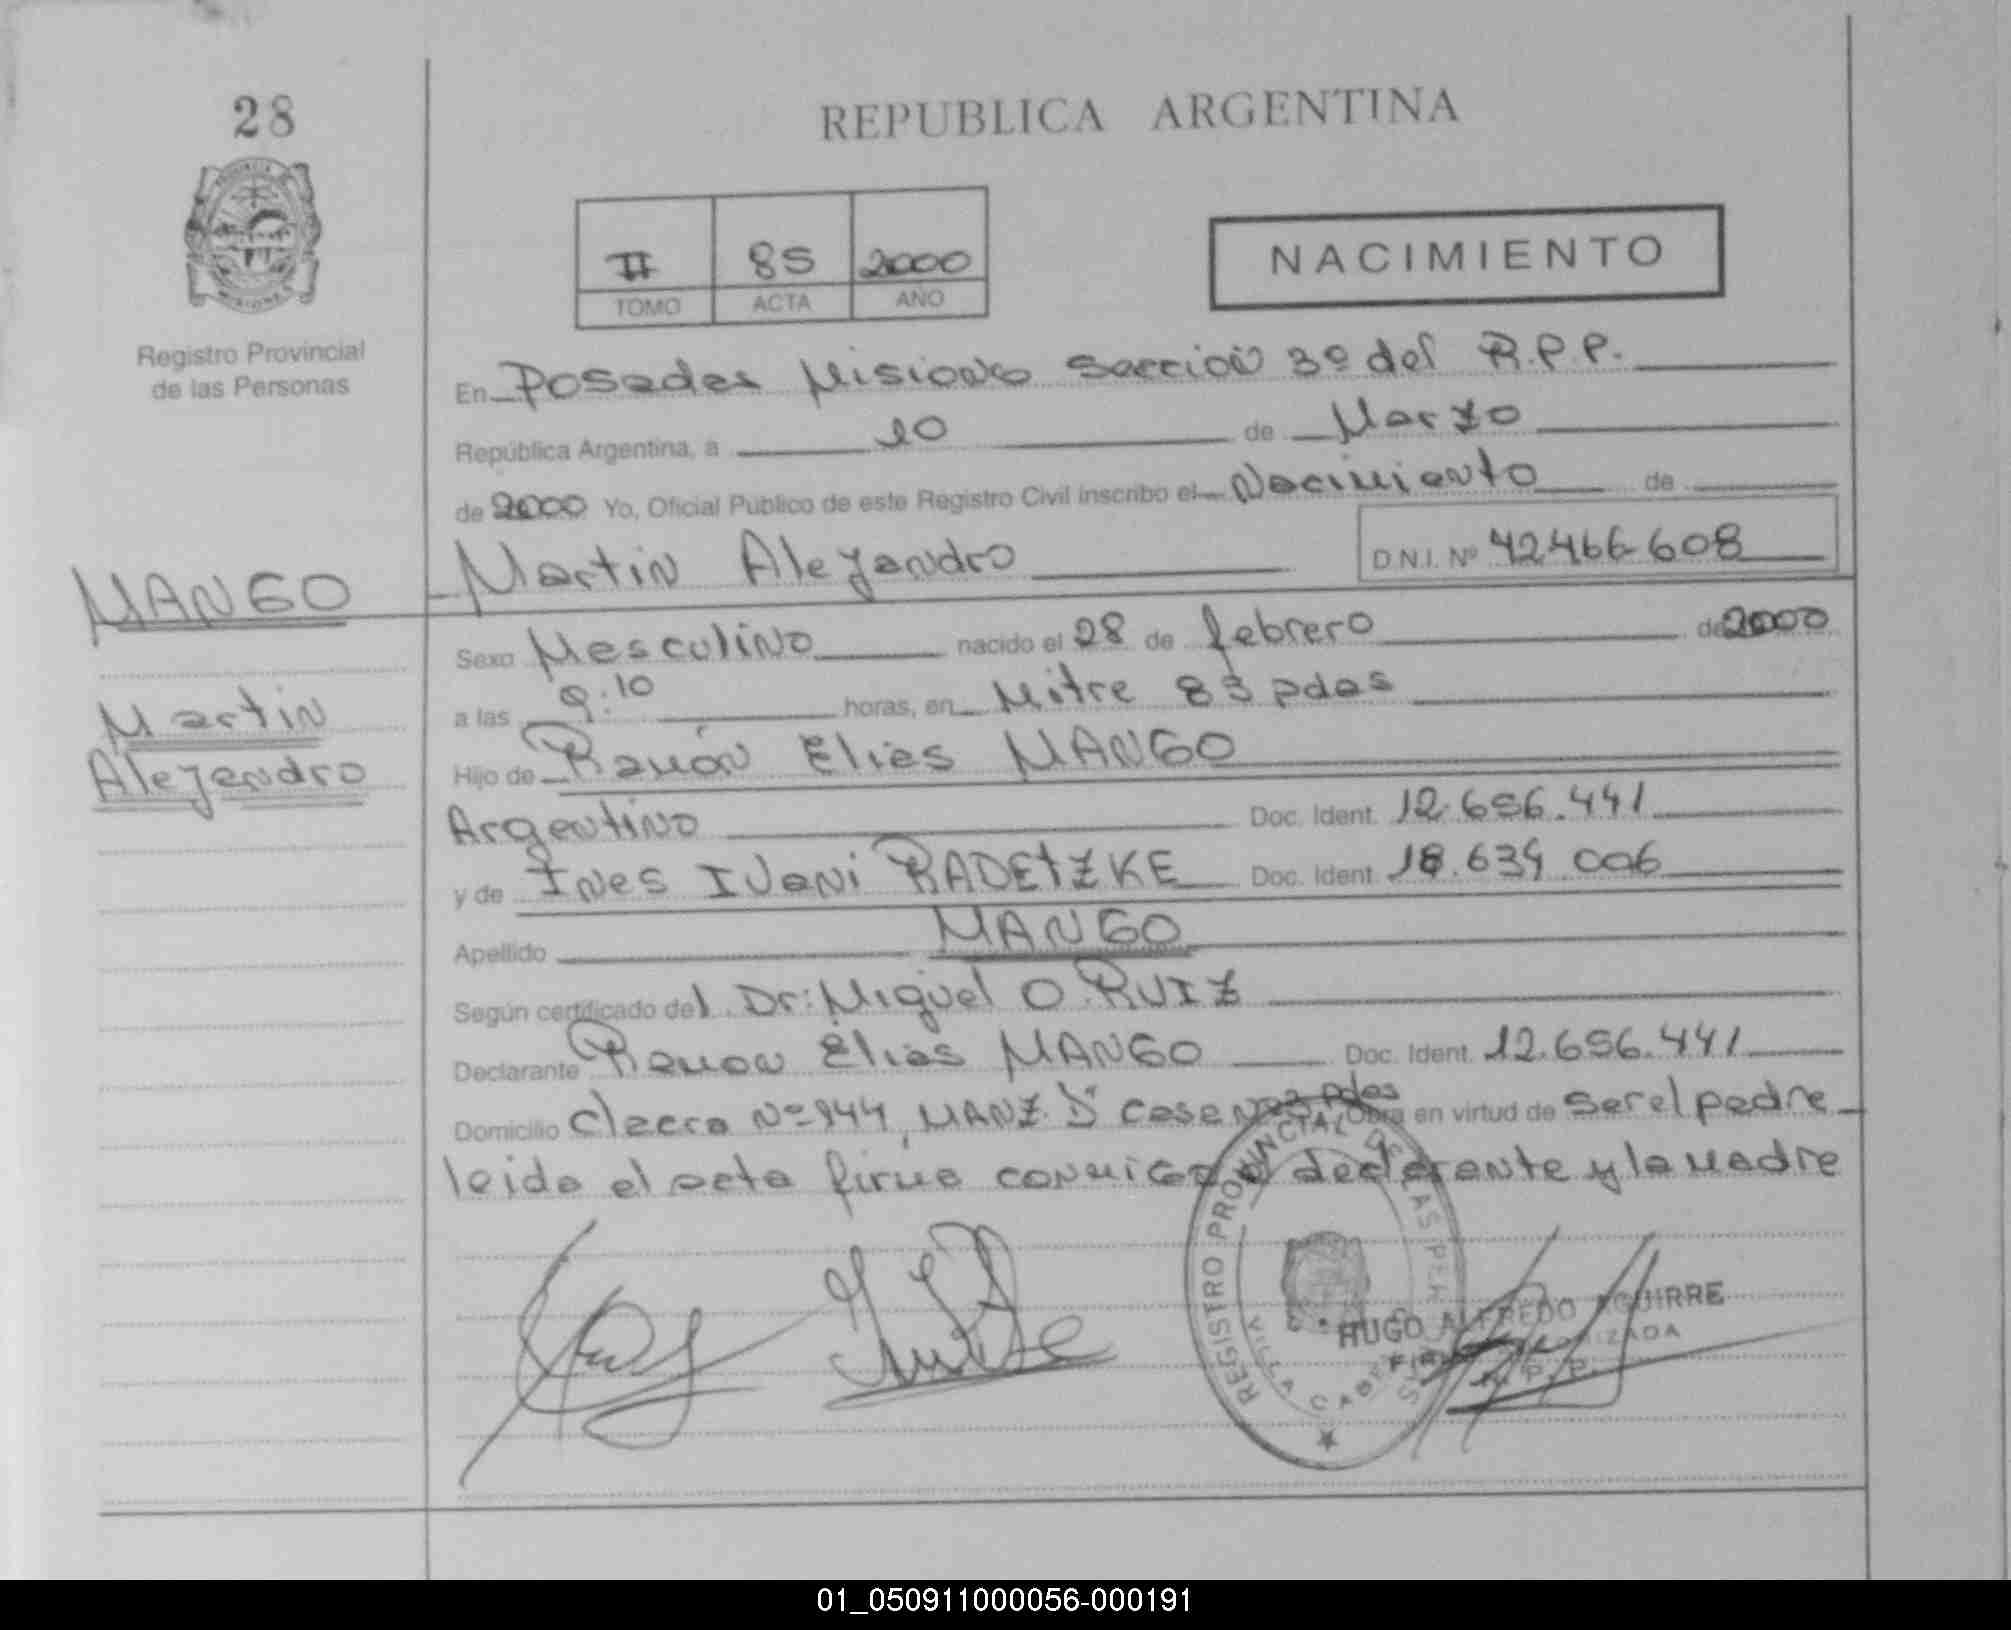 28
REPUBLICA ARGENTINA
II 85 2000
TOMO ACTA AÑO
NACIMIENTO
PROVINCIA
MISIONES
Registro Provincial
de las Personas
En Posadas Misiones Sección 3º del R.P.P.
República Argentina, a 10 de Marzo
de 2000 Yo, Oficial Público de este Registro Civil inscribo el Nacimiento de
Martin Alejandro D.N.I. Nº 42466608
MANGO
Sexo Masculino nacido el 28 de febrero de 2000
a las 9:10 horas, en Mitre 83 pdas
Martin
Alejandro
Hijo de Ramón Elias MANGO
Argentino Doc. Ident. 12.656.441
y de Ines Ivani RADETZKE Doc. Ident. 18.639.006
Apellido MANGO
Según certificado del Dr: Miguel O. RUIZ
Declarante Ramon Elias MANGO Doc. Ident. 12.656.441
Domicilio Chacra Nº 144, MANZ. D Casa Nº 3 Pdas Obra en virtud de ser el padre
leida el acta firma conmigo el declarante y la madre
REGISTRO PROVINCIAL DE LAS PER
VILLA CABE
HUGO ALFREDO AGUIRRE
R. P. P.
01_050911000056-000191